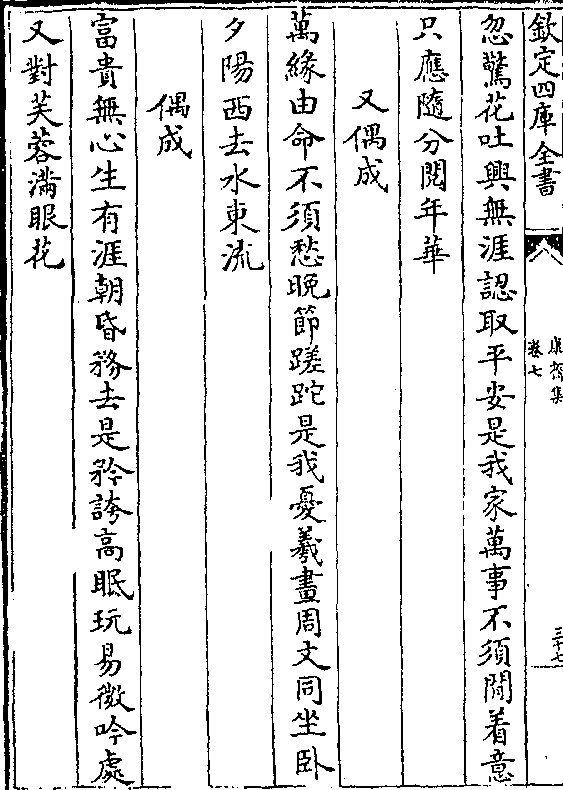 欽定四庫全書
康齋集
卷七
三十七
忽驚花吐興無涯認取平安是我家萬事不須閒着意
只應隨分閱年華
又偶成
萬緣由命不須愁晚節蹉跎是我憂羲畫周文同坐臥
夕陽西去水東流
偶成
富貴無心生有涯朝昏務去是矜誇髙眠玩易微吟處
又對芙蓉滿眼花